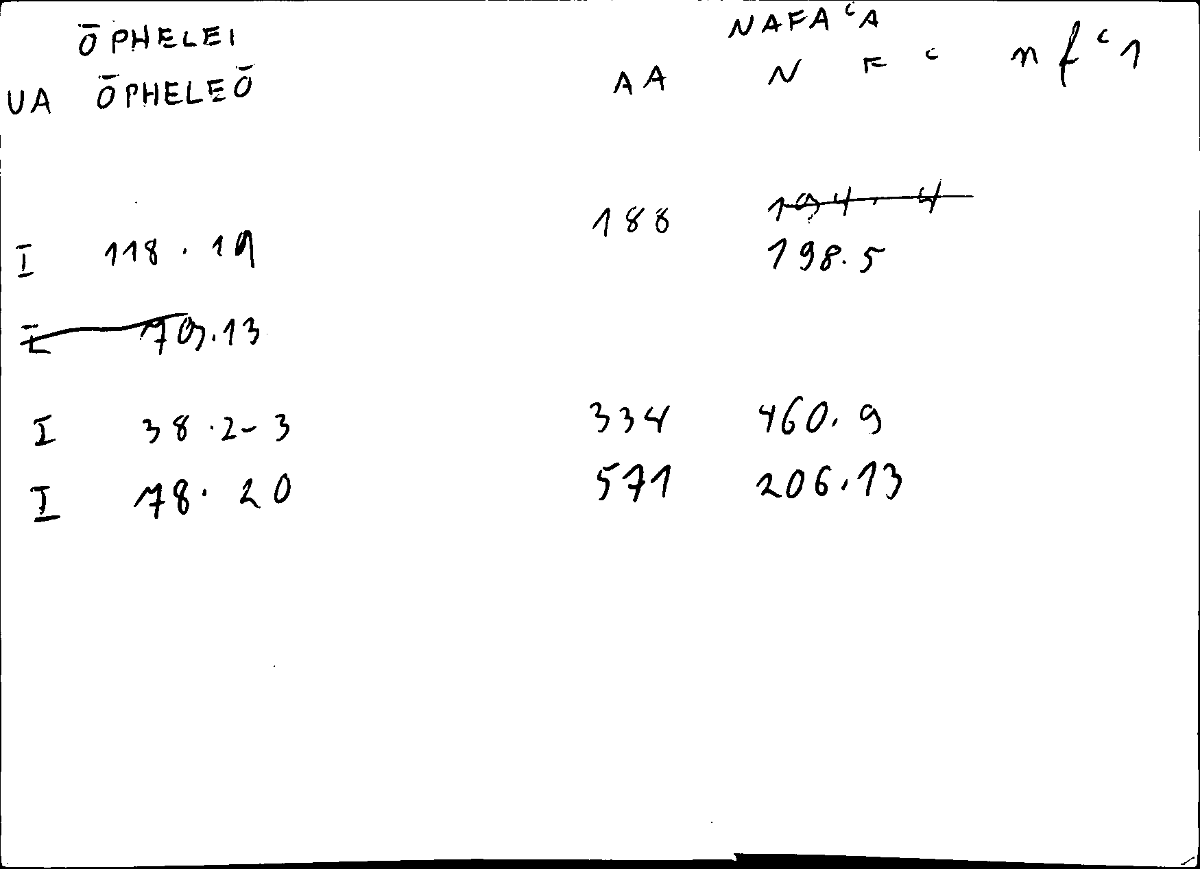 ŌPHELEI NAFAʿA
UA ŌPHELEŌ AA N F ʿ n f ʿ 1
188 194.4
I 118.19 198.5
I 79.13
I 38.2-3 334 460.9
I 78.20 571 206.13